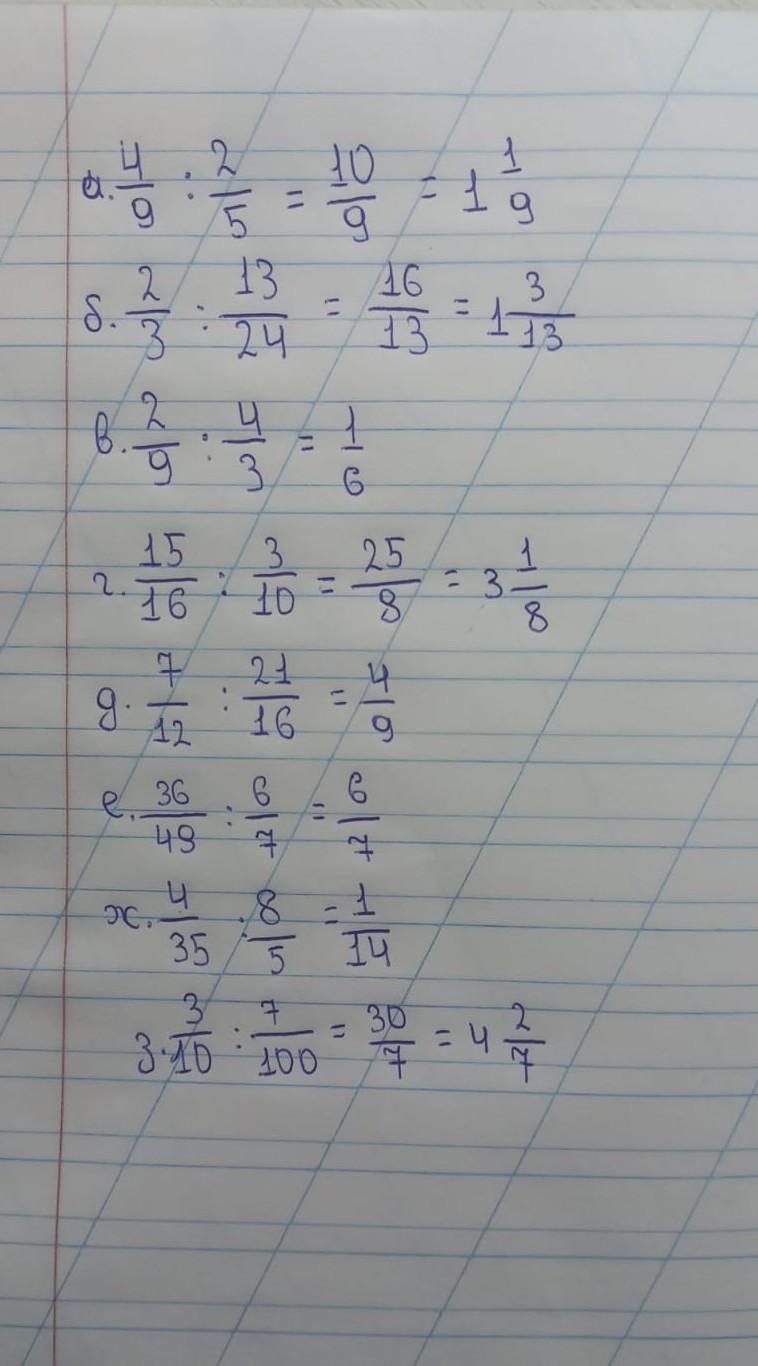 а. 4/9 : 2/5 = 10/9 = 1 1/9
б. 2/3 : 13/24 = 16/13 = 1 3/13
в. 2/9 : 4/3 = 1/6
г. 15/16 : 3/10 = 25/8 = 3 1/8
д. 7/12 : 21/16 = 4/9
е. 36/49 : 6/7 = 6/7
ж. 4/35 : 8/5 = 1/14
з. 3/10 : 7/100 = 30/7 = 4 2/7